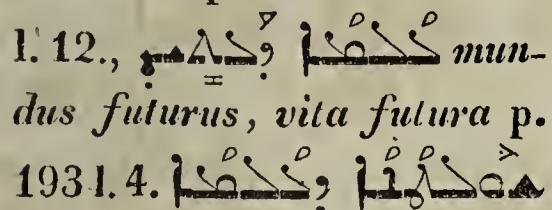 l. 12., ܥܳܠܡܳܐ ܕܰܥܬܺܝܕ mun-
dus futurus, vita futura p.
193 l. 4. ܫܽܘܠܛܳܢܳܐ ܕܥܳܠܡܳܐ